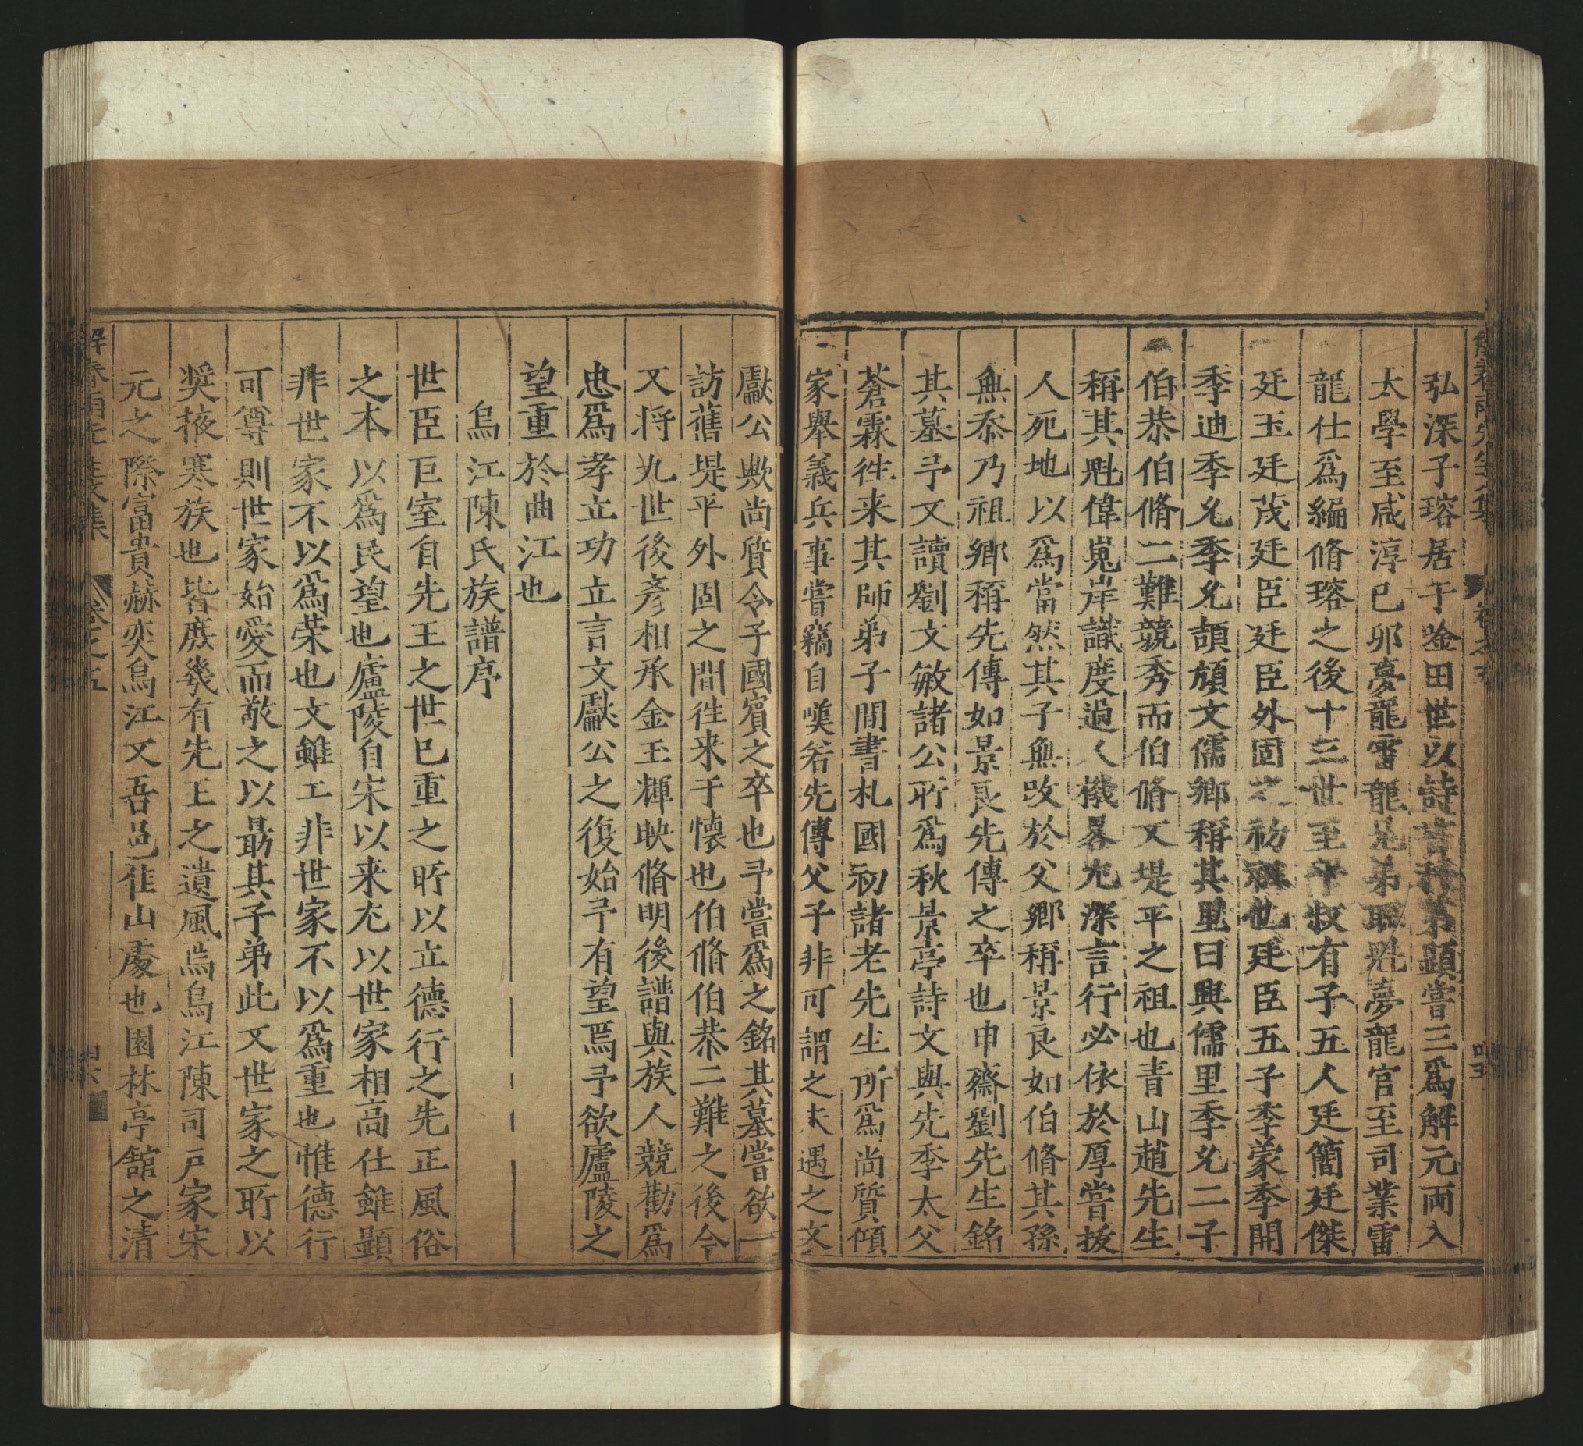 弘深子瑢居于塗田世以詩書科第顯嘗三爲解元兩入
太學至咸淳己卯夢龍雷龍兄弟聯魁夢龍官至司業雷
龍仕爲編脩瑢之後十三世至平叔有子五人廷簡廷傑
廷玉廷茂廷臣廷臣外固之初祖也廷臣五子季蒙季開
季迪季允季允頡頏文儒鄉稱其里曰興儒里季允二子
伯恭伯脩二難競秀而伯脩又堤平之祖也青山趙先生
稱其魁偉嵬岸識度過人機畧尤深言行必依於厚嘗拔
人死地以爲當然其子無攺於父鄉稱景良如伯脩其孫
無忝乃祖鄉稱先傳如景良先傳之卒也申齋劉先生銘
其墓予又讀劉文敏諸公所爲秋景亭詩文與先季太父
蒼霖徃来其師弟子間書札國初諸老先生所爲尚質傾
家舉義兵事嘗竊自嘆若先傳父子非可謂之未遇之文
獻公歟尚質令子國賓之卒也予嘗爲之銘其墓嘗欲一
訪舊堤平外固之間徃来于懷也伯脩伯恭二難之後今
又將九世後彥相承金玉輝映脩明後譜與族人競勸爲
忠爲孝立功立言文獻公之復始予有望焉予欲廬陵之
望重於曲江也
烏江陳氏族譜序
世臣巨室自先王之世已重之所以立德行之先正風俗
之本以爲民望也廬陵自宋以来尤以世家相高仕雖顯
非世家不以爲荣也文雖工非世家不以爲重也惟德行
可尊則世家始愛而敬之以勗其子弟此又世家之所以
奨掖寒族也皆庶幾有先王之遺風焉烏江陳司戶家宋
元之際富貴赫奕烏江又吾邑佳山處也園林亭舘之清